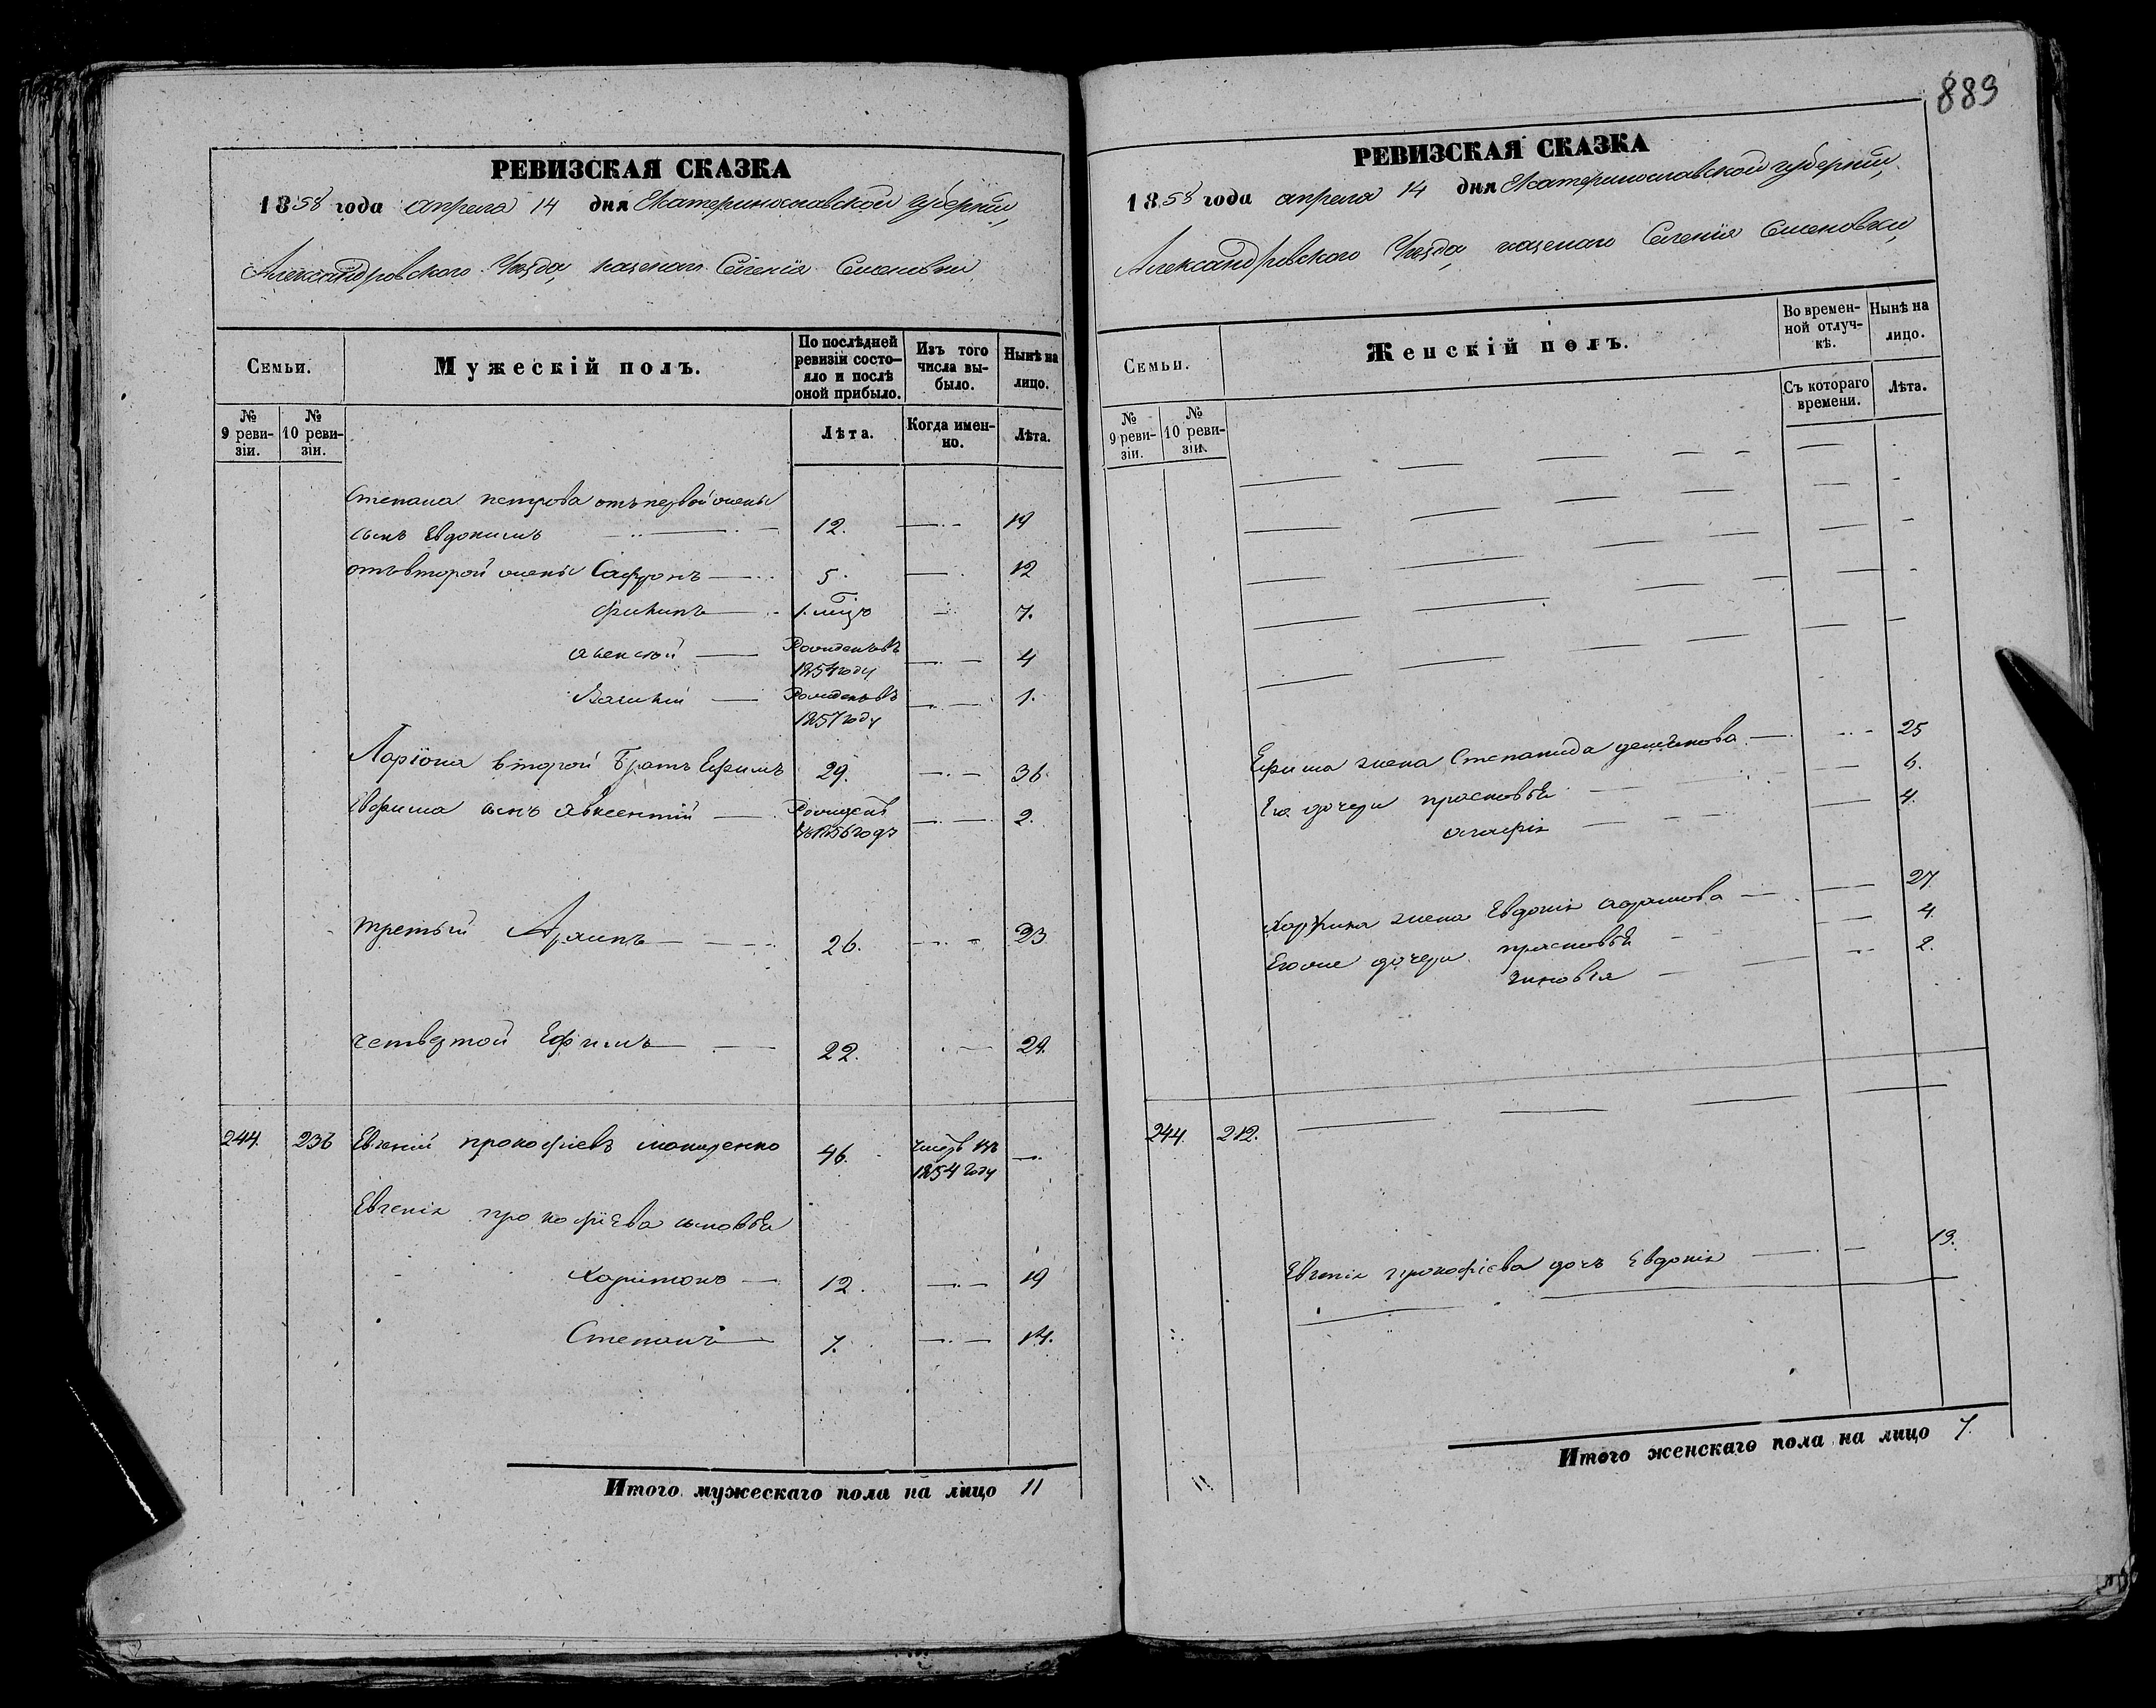 РЕВИЗСКАЯ СКАЗКА
1858 года апреля 14 дня Екатеринославской губерніи,
Александровского Уезда, казенаго Селенія Семеновки
Семьи.
Мужескій полъ.
По послѣдней ревизіи состо-яло и послѣ оной прибыло.
Изъ того числа вы-было.
Нынѣ на лицо.
№ 9 реви-зіи.
№ 10 реви-зіи.
Лѣта.
Когда имен-но.
Лѣта.
Степана петрова отъ первой жены
сынъ Евдокимъ 12. 19
отъ второй жены Сафронъ 5. 12
филипъ 1. 7.
алексѣй Рожденъ въ 1854 году 4
Василій Рожденъ въ 1857 году 1.
Ларіона второй братъ Ефимъ 29. 36
Ефима сынъ авксентій 1856 году 2.
третьй Архипъ 26. 23
четвертой Ефимъ 22. 29.
244. 236 Евгеній прокофіевъ 46. 1854 году
Евгенія прокофіева сыновья
Харитонъ 12. 19
Степанъ 7. 14.
Итого мужескаго пола на лицо 11
883
РЕВИЗСКАЯ СКАЗКА
1858 года апреля 14 дня Екатеринославской губерніи,
Александровского Уезда, казенаго Селенія Семеновки,
Семьи.
Женскій полъ.
Во времен-ной отлуч-кѣ.
Нынѣ на лицо.
№ 9 реви-зіи.
№ 10 реви-зіи.
Съ котораго времени.
Лѣта.
Ефима жена Степанида 25
Его дочери прасковья 6.
агафія 4.
жена Евдокія 27.
Его же дочери прасковья 4.
зиновія 2.
244. 212.
Евгенія прокофіева дочь Евдокія 13.
Итого женскаго пола на лицо 7.